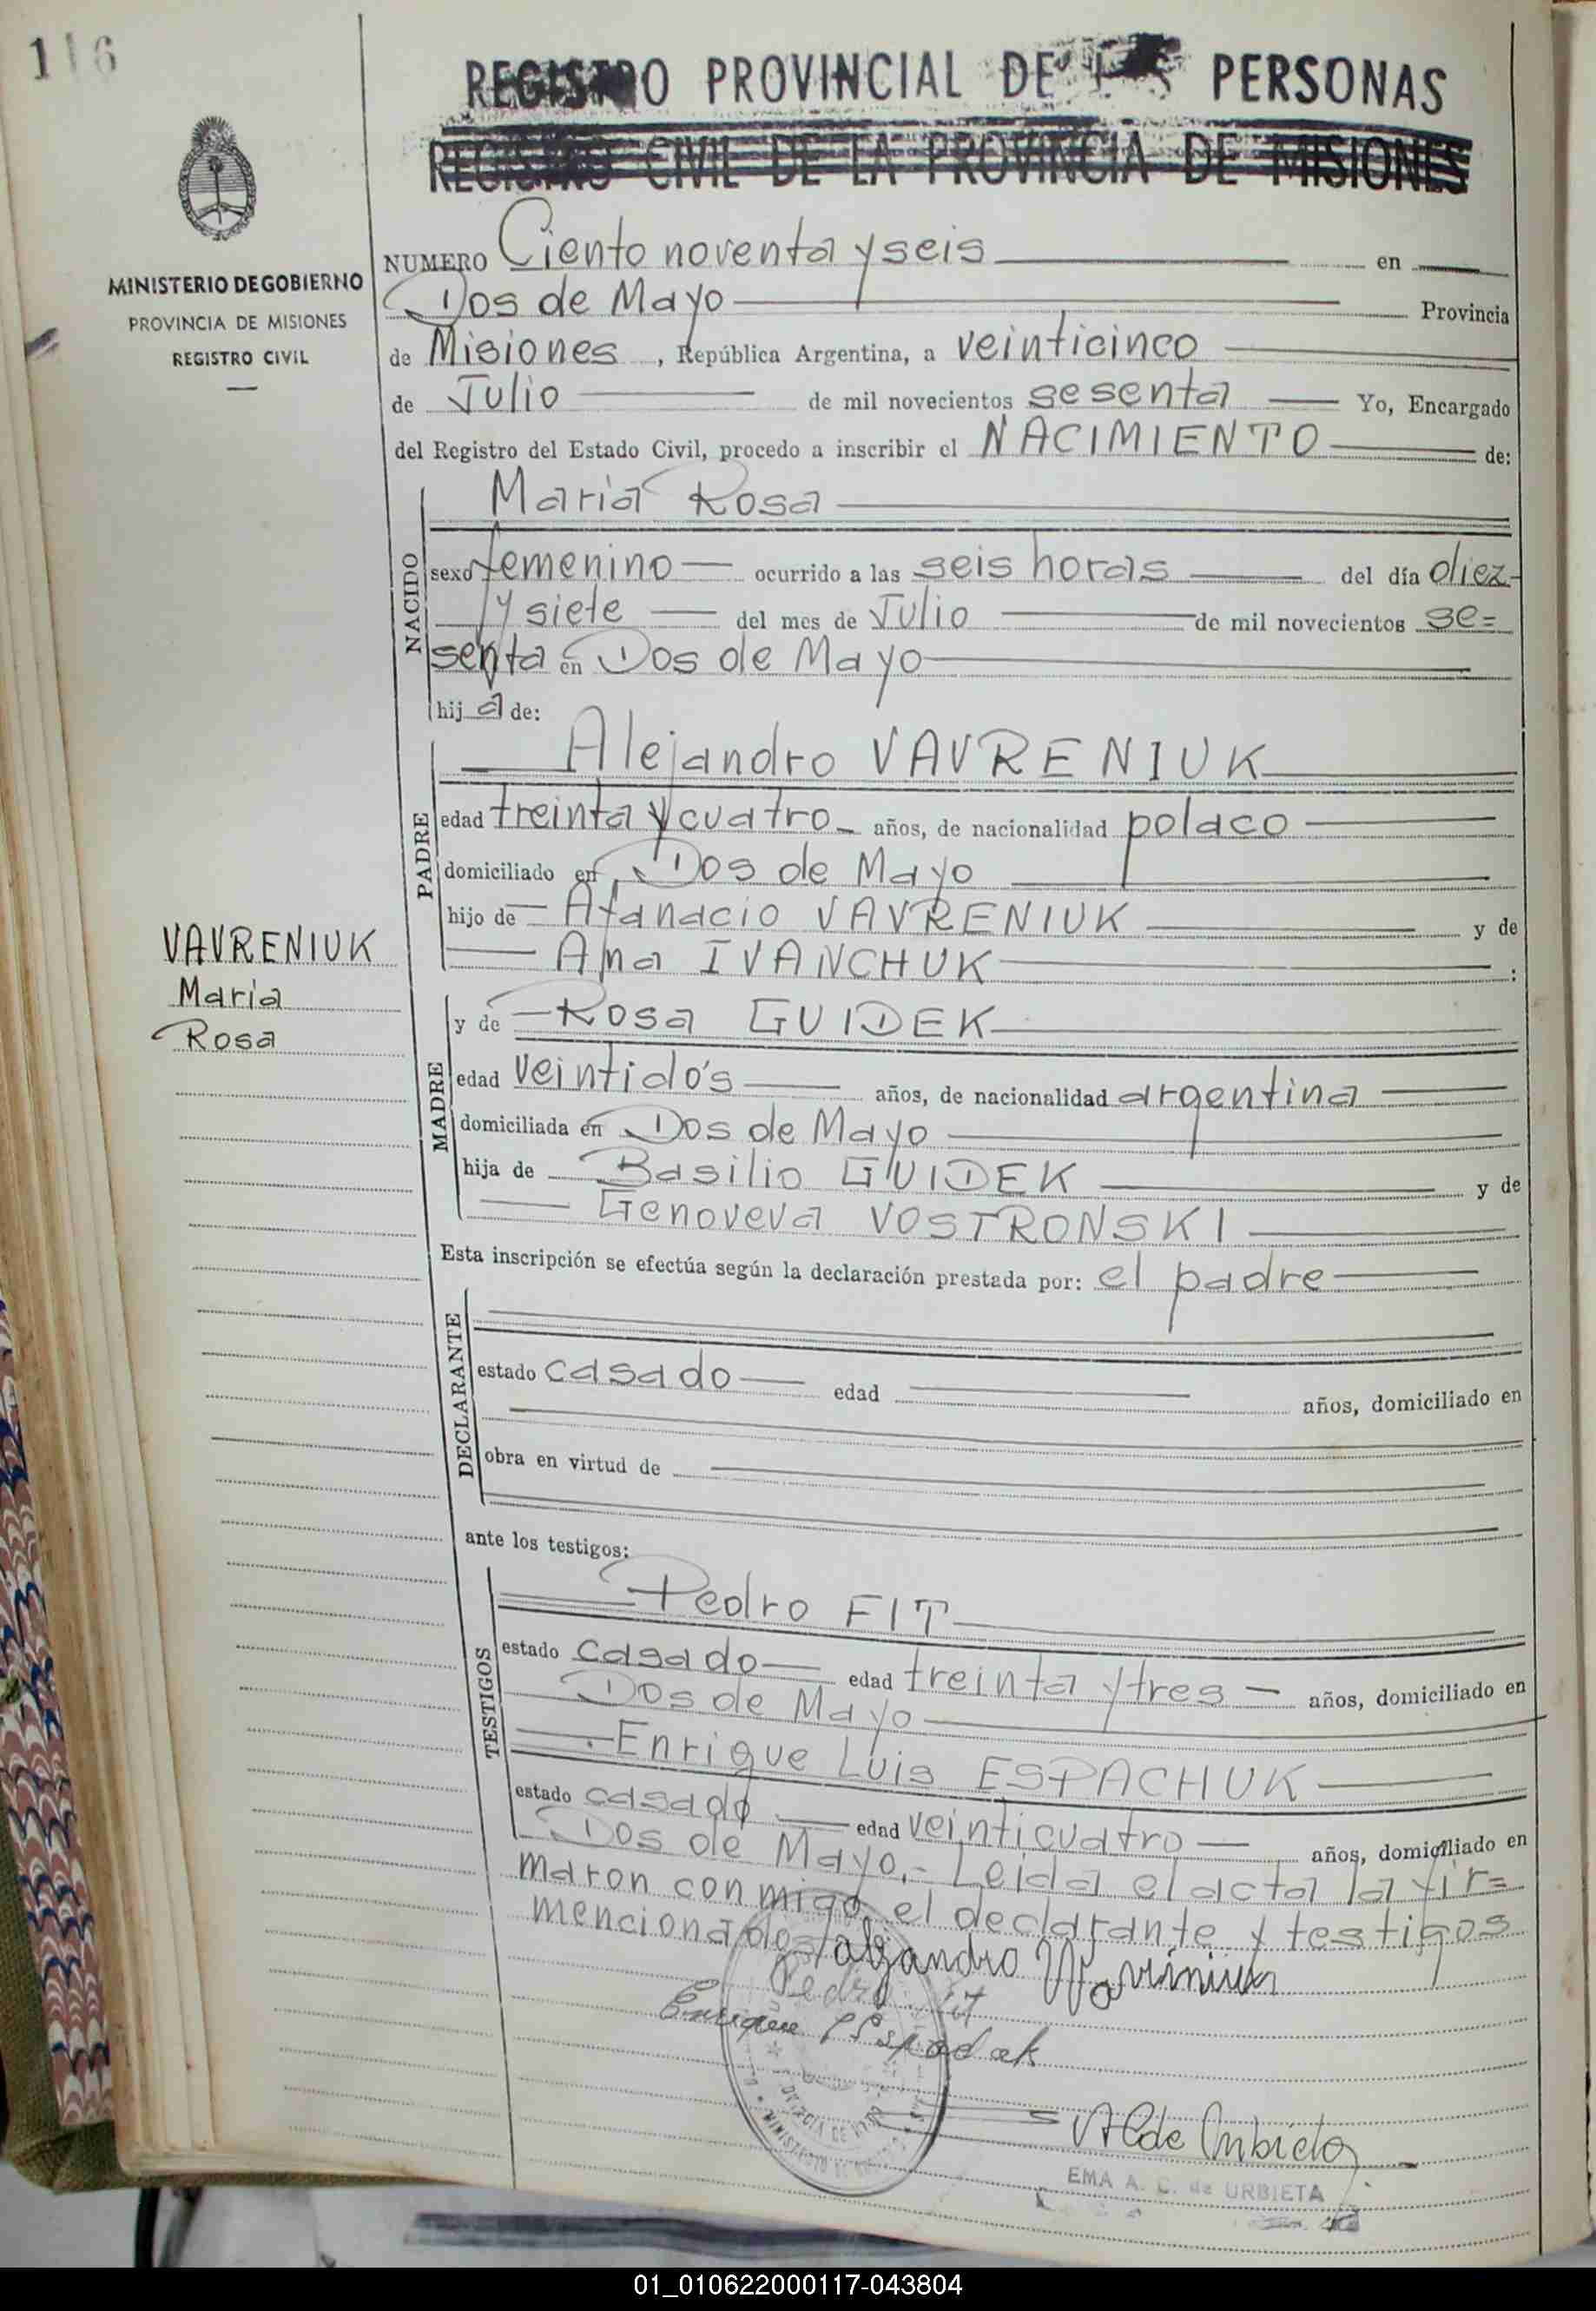 116
REGISTRO PROVINCIAL DE PERSONAS
REGISTRO CIVIL DE LA PROVINCIA DE MISIONES
MINISTERIO DE GOBIERNO
PROVINCIA DE MISIONES
REGISTRO CIVIL
NUMERO Ciento noventa y seis en
Dos de Mayo Provincia
de Misiones, República Argentina, a veinticinco
de Julio de mil novecientos sesenta Yo, Encargado
del Registro del Estado Civil, procedo a inscribir el NACIMIENTO de:
NACIDO
Maria Rosa
sexo femenino ocurrido a las seis horas del día diez
y siete del mes de Julio de mil novecientos se=
senta en Dos de Mayo
hija de:
PADRE
Alejandro VAVRENIUK
edad treinta y cuatro años, de nacionalidad polaco
domiciliado en Dos de Mayo
hijo de Afanacio VAVRENIUK y de
Ana IVANCHUK :
VAVRENIUK
Maria
Rosa
MADRE
y de Rosa GUIDEK
edad veintidós años, de nacionalidad argentina
domiciliada en Dos de Mayo
hija de Basilio GUIDEK y de
Genoveva VOSTRONSKI
Esta inscripción se efectúa según la declaración prestada por: el padre
DECLARANTE
estado casado edad años, domiciliado en
obra en virtud de
ante los testigos:
TESTIGOS
Pedro FIT
estado casado edad treinta y tres años, domiciliado en
Dos de Mayo
Enrique Luis ESPACHUK
estado casado edad veinticuatro años, domiciliado en
Dos de Mayo.- Leída el acta la fir=
maron conmigo el declarante y testigos
mencionados
Pedro Fit
Enrique
EMA A. C. de URBIETA
01_010622000117-043804